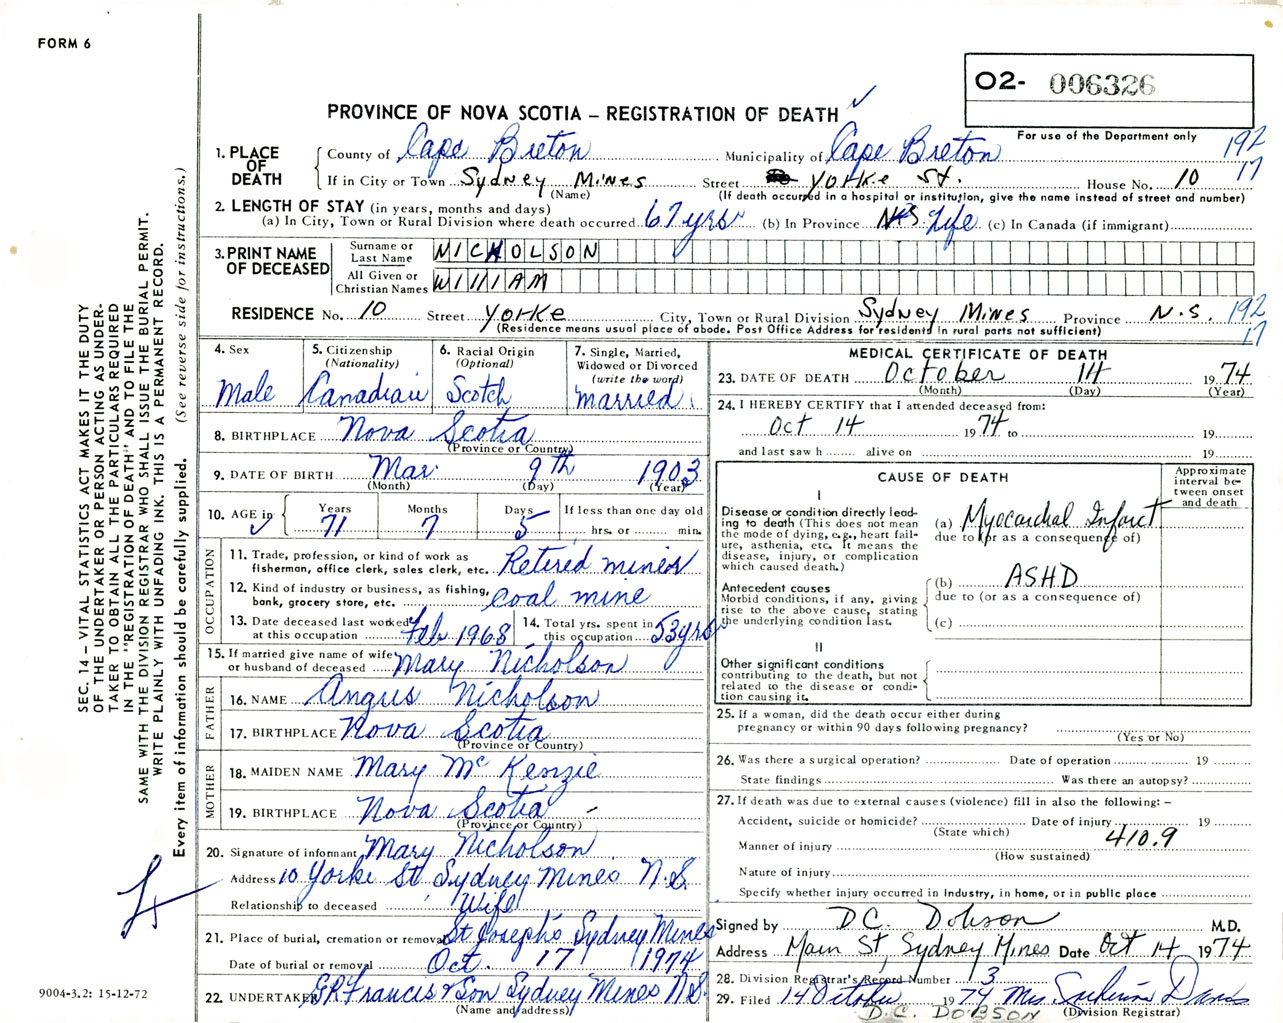 FORM 6
02- 006326
PROVINCE OF NOVA SCOTIA – REGISTRATION OF DEATH
For use of the Department only
192
17
1. PLACE OF DEATH County of Cape Breton Municipality of Cape Breton
If in City or Town Sydney Mines Street Yorke St. House No. 10
(Name) (If death occurred in a hospital or institution, give the name instead of street and number)
2. LENGTH OF STAY (in years, months and days)
(a) In City, Town or Rural Division where death occurred 67 yrs (b) In Province Life (c) In Canada (if immigrant)
3. PRINT NAME OF DECEASED Surname or Last Name NICHOLSON
All Given or Christian Names WILLIAM
RESIDENCE No. 10 Street Yorke City, Town or Rural Division Sydney Mines Province N.S. 192
(Residence means usual place of abode. Post Office Address for residents in rural parts not sufficient) 17
4. Sex Male
5. Citizenship (Nationality) Canadian
6. Racial Origin (Optional) Scotch
7. Single, Married, Widowed or Divorced (write the word) Married
8. BIRTHPLACE Nova Scotia
(Province or Country)
9. DATE OF BIRTH Mar 9th 1903
(Month) (Day) (Year)
10. AGE in Years 71 Months 7 Days 5 If less than one day old hrs. or min.
OCCUPATION
11. Trade, profession, or kind of work as fisherman, office clerk, sales clerk, etc. Retired miner
12. Kind of industry or business, as fishing, bank, grocery store, etc. Coal mine
13. Date deceased last worked at this occupation Feb 1968 14. Total yrs. spent in this occupation 53 yrs
15. If married give name of wife or husband of deceased Mary Nicholson
FATHER
16. NAME Angus Nicholson
17. BIRTHPLACE Nova Scotia
(Province or Country)
MOTHER
18. MAIDEN NAME Mary McKenzie
19. BIRTHPLACE Nova Scotia
(Province or Country)
20. Signature of informant Mary Nicholson
Address 10 Yorke St Sydney Mines N.S.
Relationship to deceased Wife
21. Place of burial, cremation or removal St Joseph's Sydney Mines
Date of burial or removal Oct. 17 1974
22. UNDERTAKER Francis & Son Sydney Mines N.S.
(Name and address)
MEDICAL CERTIFICATE OF DEATH
23. DATE OF DEATH October 14 1974
(Month) (Day) (Year)
24. I HEREBY CERTIFY that I attended deceased from:
Oct 14 1974 to 19
and last saw h alive on 19
CAUSE OF DEATH
Approximate interval between onset and death
I
Disease or condition directly leading to death (This does not mean the mode of dying, e.g., heart failure, asthenia, etc. It means the disease, injury, or complication which caused death.)
(a) Myocardial Infarct
due to (or as a consequence of)
Antecedent causes
Morbid conditions, if any, giving rise to the above cause, stating the underlying condition last.
(b) ASHD
due to (or as a consequence of)
(c)
II
Other significant conditions contributing to the death, but not related to the disease or condition causing it.
25. If a woman, did the death occur either during pregnancy or within 90 days following pregnancy?
(Yes or No)
26. Was there a surgical operation? Date of operation 19
State findings Was there an autopsy?
27. If death was due to external causes (violence) fill in also the following: –
Accident, suicide or homicide? Date of injury 19
(State which) 410.9
Manner of injury
(How sustained)
Nature of injury
Specify whether injury occurred in industry, in home, or in public place
Signed by D.C. Dobson M.D.
Address Main St, Sydney Mines Date Oct 14 1974
28. Division Registrar's Record Number 3
29. Filed 14 October 1974 Mrs.
D.C. DOBSON (Division Registrar)
SEC. 14 – VITAL STATISTICS ACT MAKES IT THE DUTY
OF THE UNDERTAKER OR PERSON ACTING AS UNDER-
TAKER TO OBTAIN ALL THE PARTICULARS REQUIRED
IN THE "REGISTRATION OF DEATH" AND TO FILE THE
SAME WITH THE DIVISION REGISTRAR WHO SHALL ISSUE THE BURIAL PERMIT.
WRITE PLAINLY WITH UNFADING INK. THIS IS A PERMANENT RECORD.
Every item of information should be carefully supplied. (See reverse side for instructions.)
9004-3.2: 15-12-72